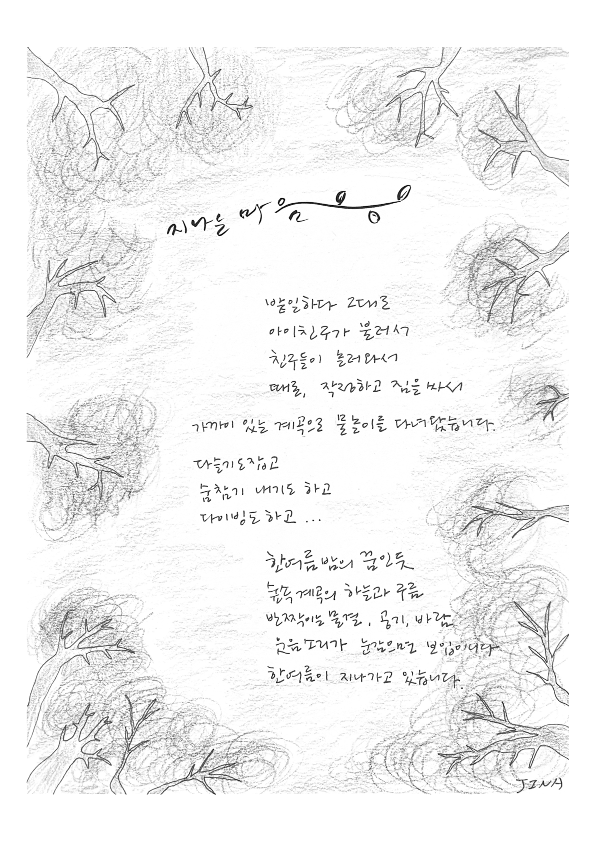 지나는 마음
밭일하다 그대로
아이친구가 불러서
친구들이 놀러와서
때로, 작정하고 짐을 싸서
가까이 있는 계곡으로 물놀이를 다녀왔습니다.
다슬기도잡고
숨참기 내기도 하고
다이빙도 하고 ...
한여름밤의 꿈인듯
숲속계곡의 하늘과 구름
반짝이는 물결, 공기, 바람
웃음소리가 눈감으면 보입이니다
한여름이 지나가고 있습니다.
JINA